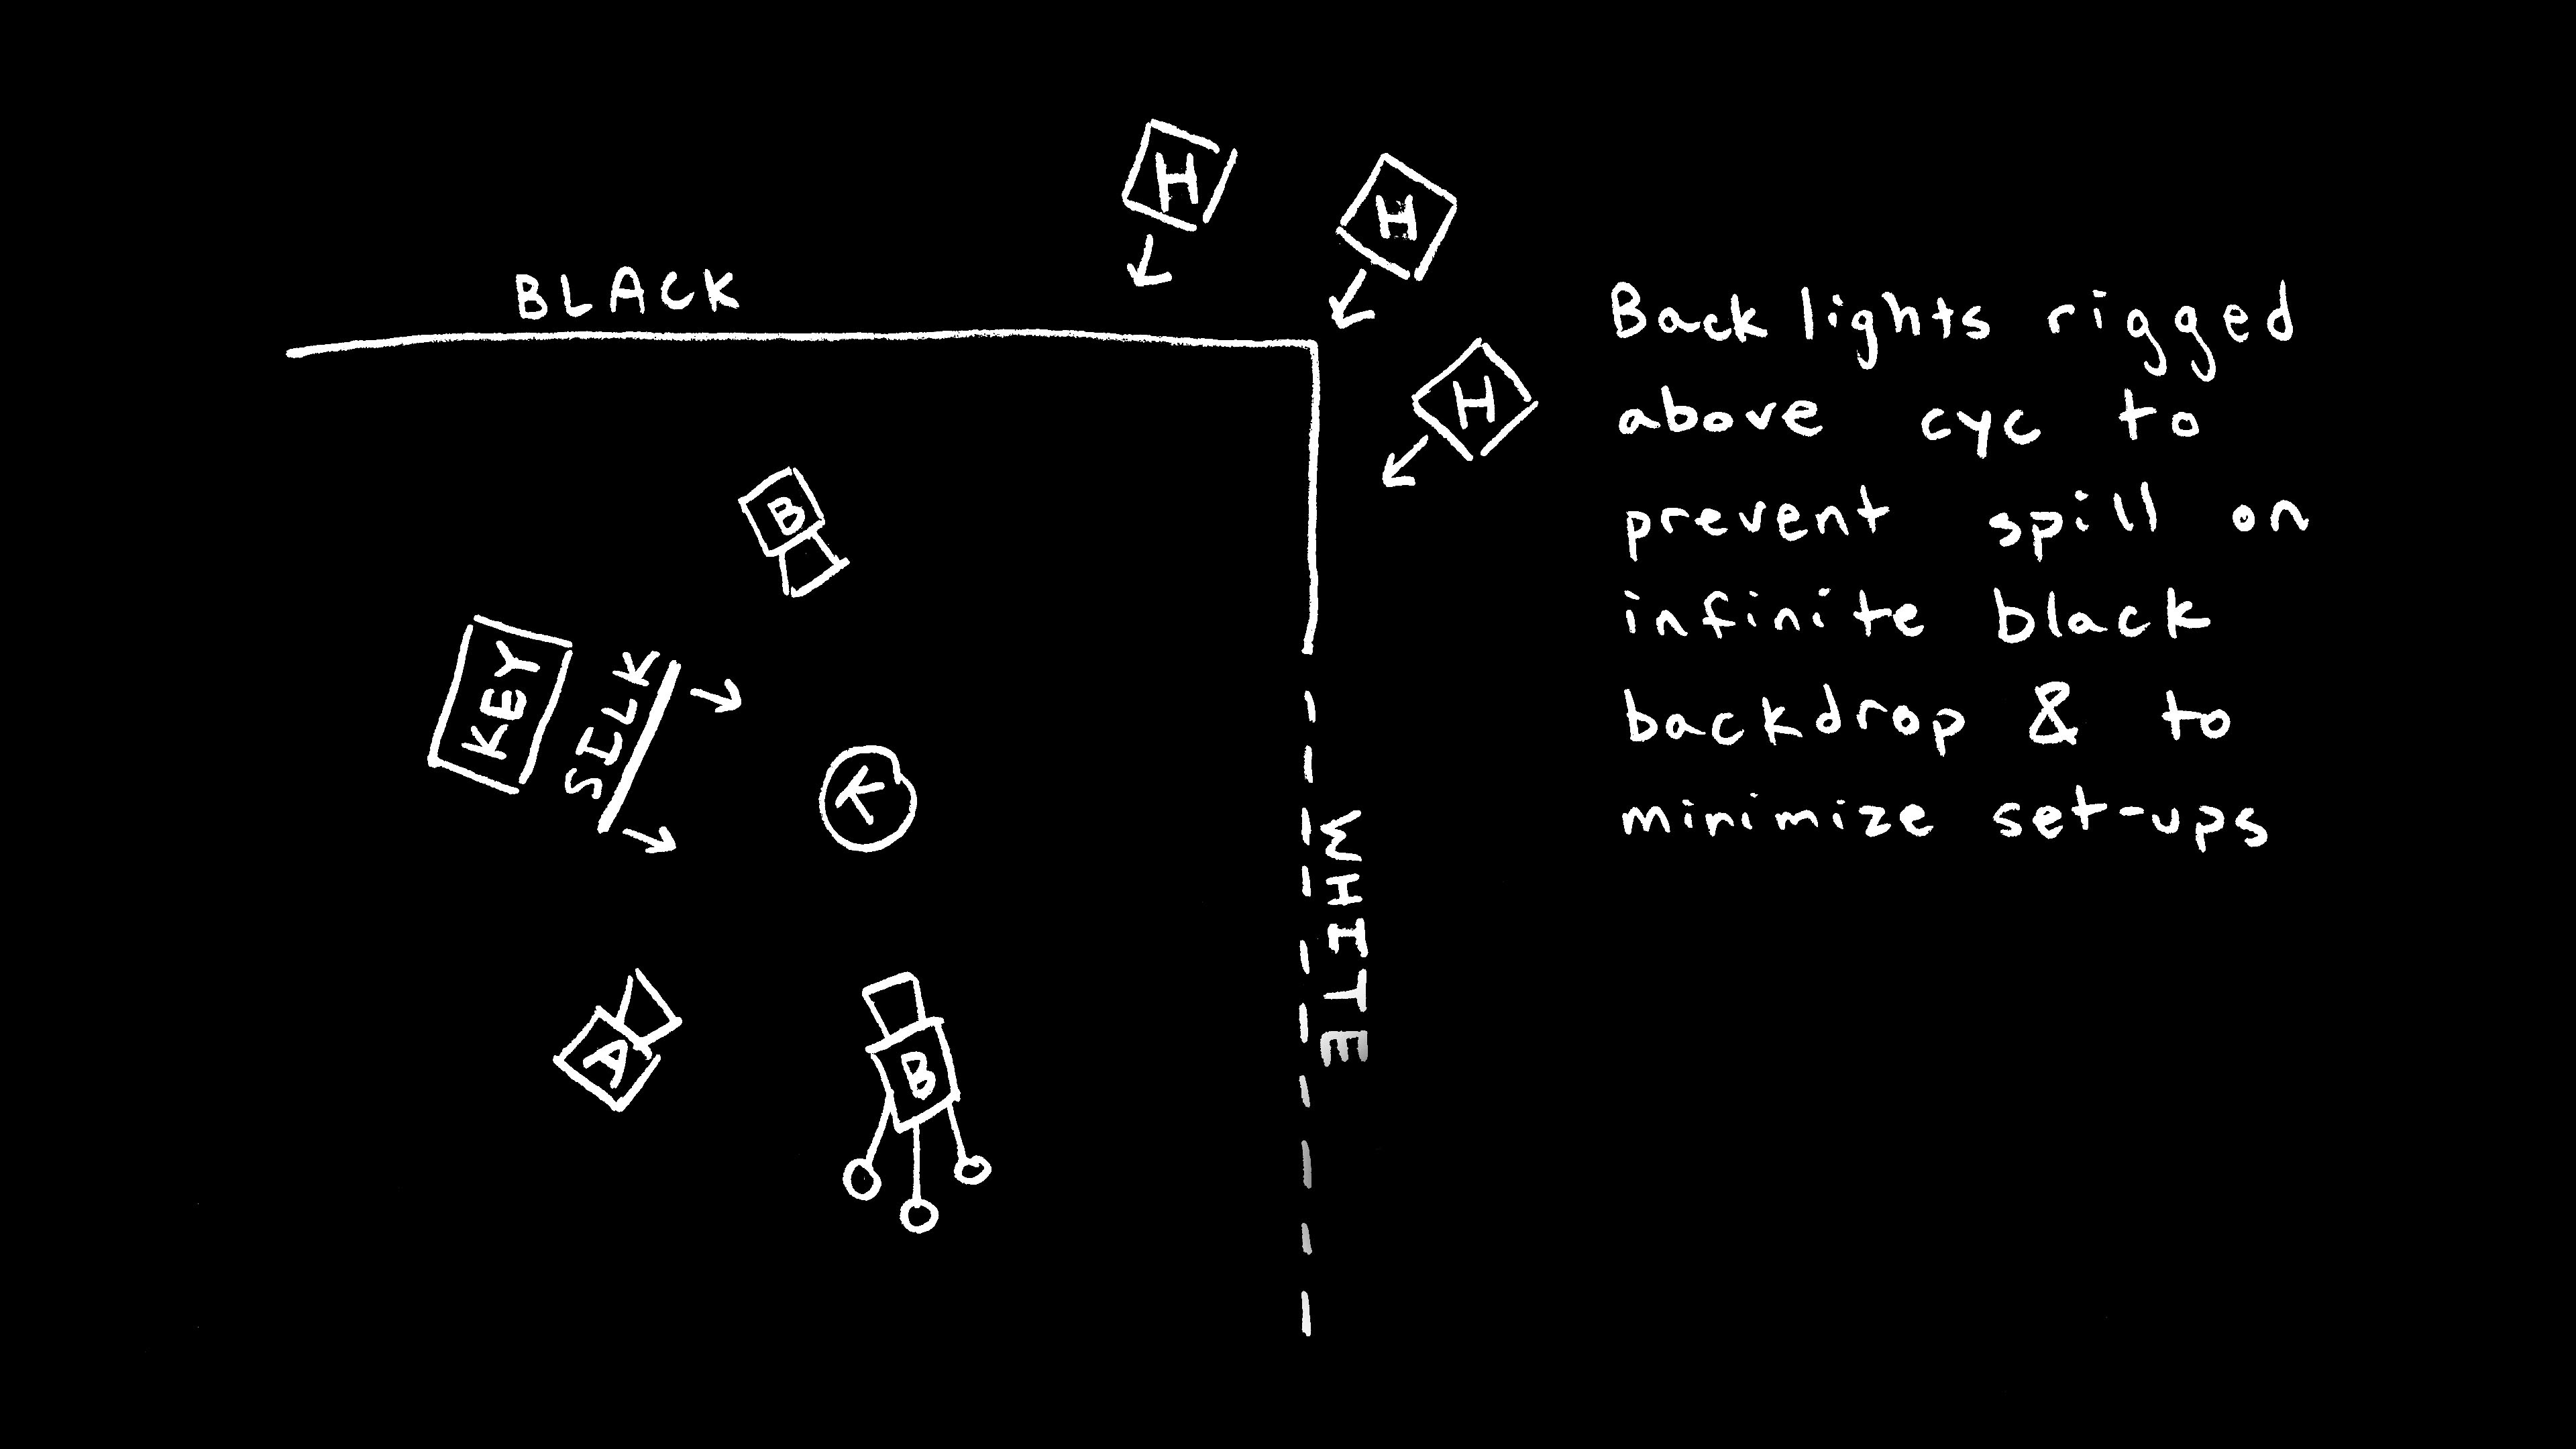 H
H
BLACK
H
Back lights rigged
above cyc to
prevent spill on
infinite black
backdrop & to
minimize set-ups
B
KEY
SILK
K
WHITE
A
B